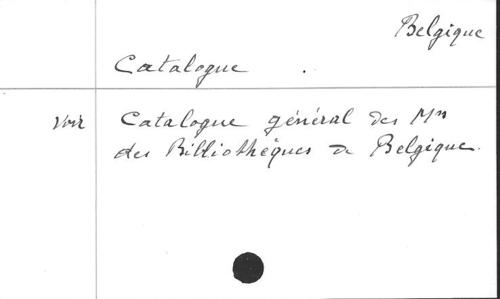 Belgique
Catalogue .
Voir Catalogue général des Mss
des Bibliothèques de Belgique.